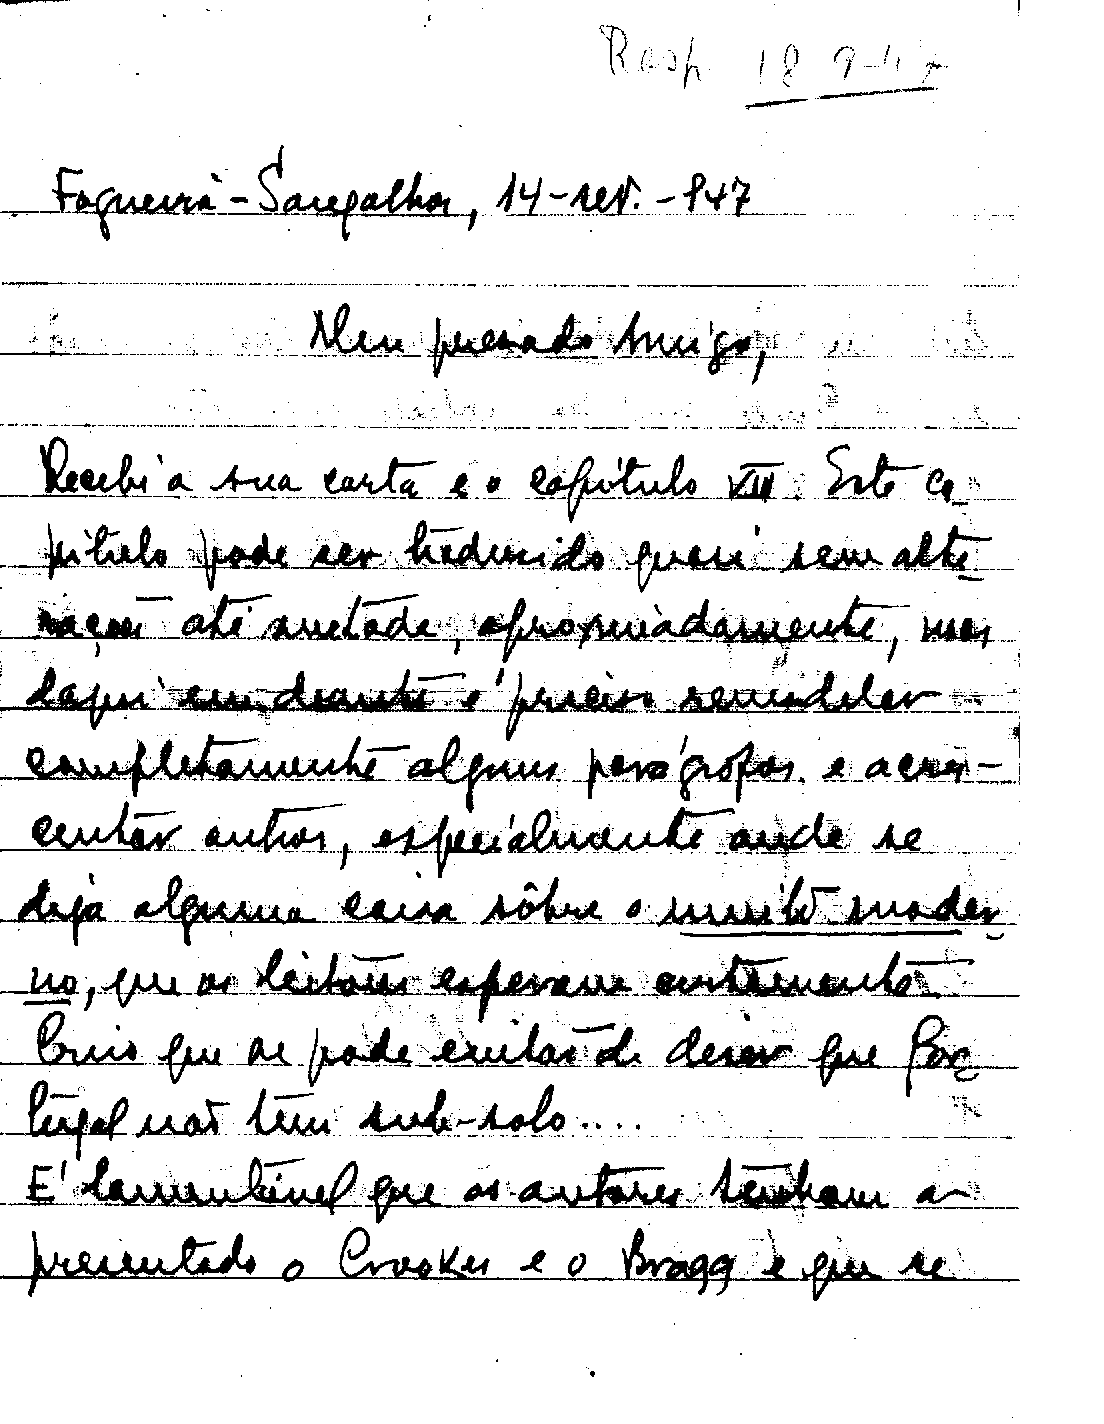 Resp. 18-9-47
Fogueira - Sangalhos, 14-set.-947
Meu presado Amigo,
Recebi a sua carta e o capítulo VIII. Este ca-
pítulo pode ser traduzido quasi sem alte-
rações até metade, apropriadamente, mas
daqui em deante é preciso remodelar
completamente alguns parágrafos e acres-
centar outros, especialmente onde se
diga alguma coisa sôbre o muito moder-
no, que os leitores esperam certamente.
Creio que se pode evitar de dizer que Por-
tugal não tem sub-solo....
E' lamentável que os autores tenham a-
presentado o Crookes e o Bragg e que se